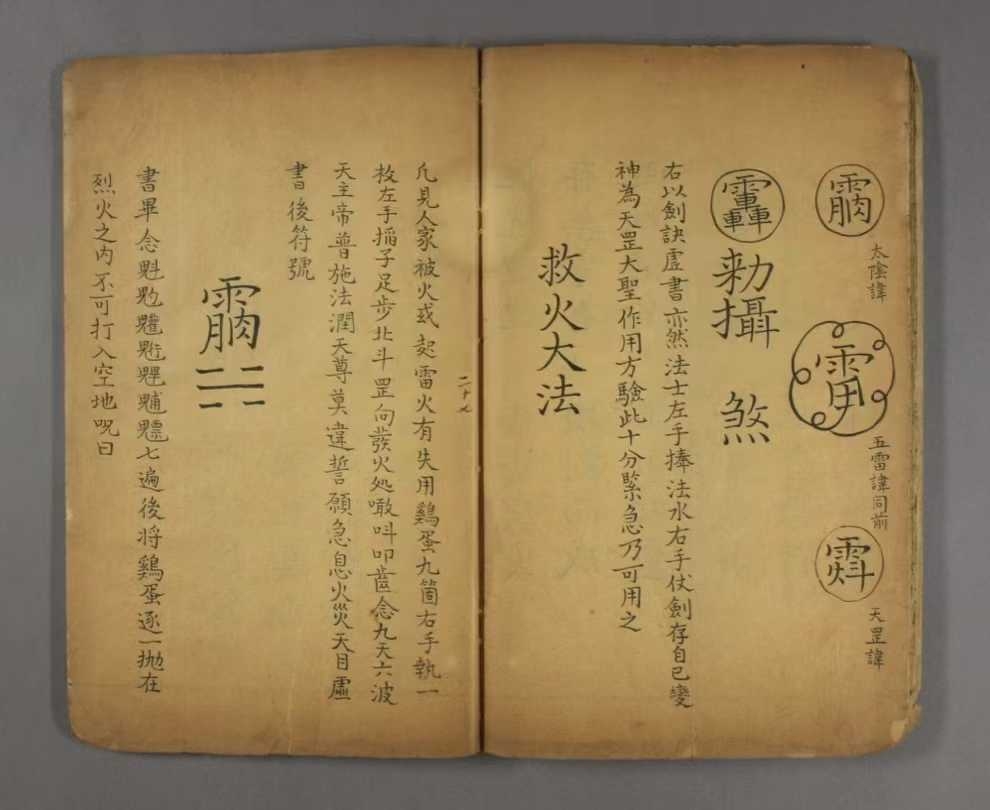 太陰諱
五雷諱同前
天罡諱
勑攝 煞
右以劍訣虛書亦然法士左手捧法水右手仗劍存自己變
神為天罡大聖作用方驗此十分緊急乃可用之
救火大法
二十七
凢見人家被火或起雷火有失用鷄蛋九箇右手執一
枚左手搯子足步北斗罡向發火処噉呌叩齒念九天六波
天主帝普施法潤天尊莫違誓願急息火災天目虛
書後符號
書畢念魁𩲃䰢魓七遍後將鷄蛋逐一抛在
烈火之内不可打入空地呪曰